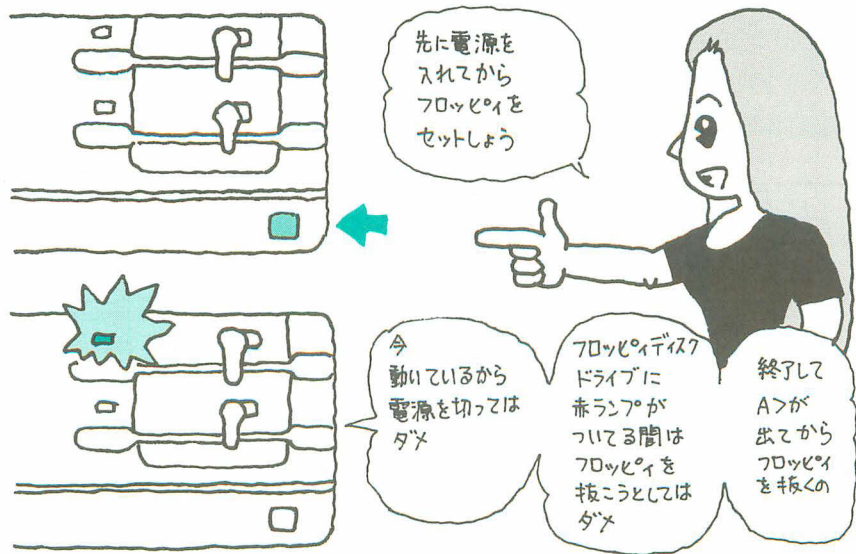 先に電源を
入れてから
フロッピィを
セットしよう
今
動いているから
電源を切っては
ダメ
フロッピィディスク
ドライブに
赤ランプが
ついてる間は
フロッピィを
抜こうとしては
ダメ
終了して
A>が
出てから
フロッピィ
を抜くの